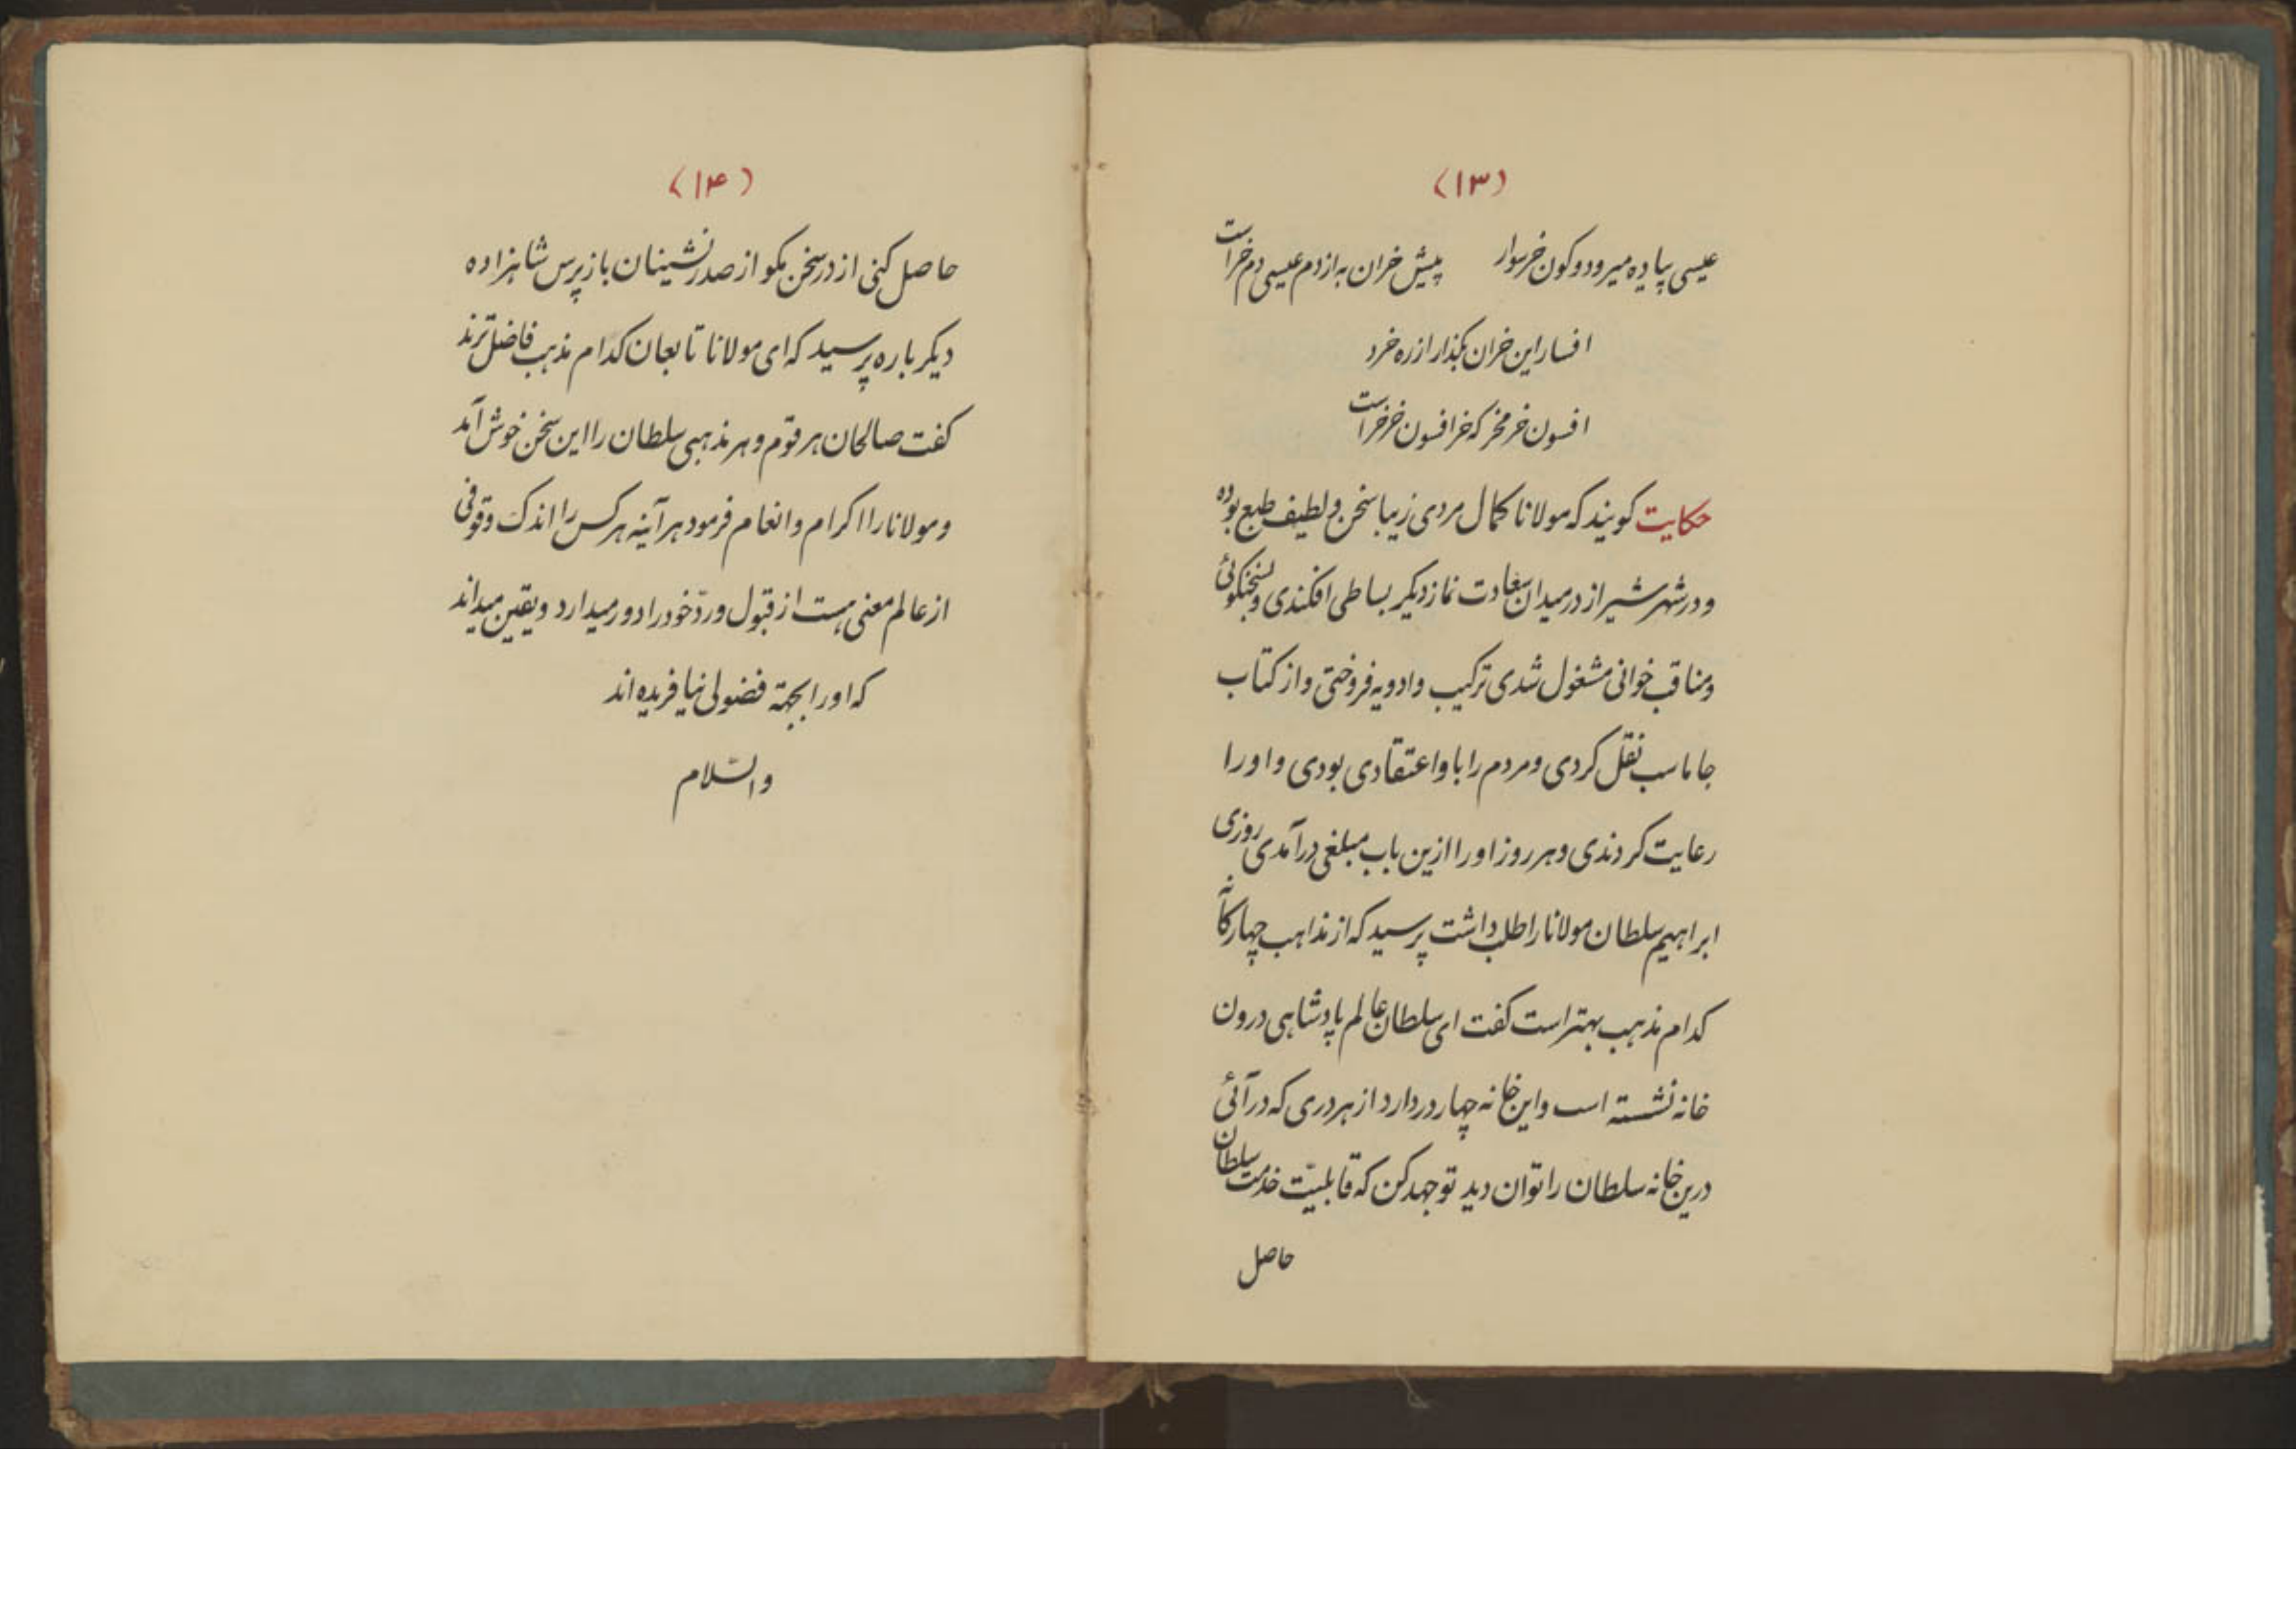 (۱۳)
عیسی پیاده میرود و کون خر سوار پیش خران به از دم عیسی دم خر است
افسار این خران بگذار از ره خرد
افسون خر مخر که خر افسون خر خر است
حکایت کویند که مولانا کمال مردی زیبا سخن و لطیف طبع بوده
و در شهر شیراز در میدان سعادت نماز دیکر بساطی افکندی و بسخنکوئی
و مناقب خوانی مشغول شدی ترکیب و ادویه فروختی و از کتاب
جاماسب نقل کردی و مردم را باو اعتقادی بودی و او را
رعایت کردندی و هر روز او را ازین باب مبلغی در آمدی روزی
ابراهیم سلطان مولانا را طلب داشت پرسید که از مذاهب چهارکانه
کدام مذهب بهتر است کفت ای سلطان عالم پادشاهی درون
خانه نشسته است و این خانه چهار در دارد از هر دری که در آئی
درین خانه سلطان را توان دید تو جهد کن که قابلیّت خدمت سلطان
حاصل
(۱۴)
حاصل کنی از در سخن مکو از صدر نشینان باز پرس شاهزاده
دیکر باره پرسید که ای مولانا تابعان کدام مذهب فاضل ترند
کفت صالحان هر قوم و هر مذهبی سلطان را این سخن خوش آمد
و مولانا را اکرام و انعام فرمود هر آینه هر کس را اندک وقوفی
از عالم معنی هست از قبول و ردّ خود را دور میدارد و یقین میداند
که او را بجهة فضولی نیافریده اند
والسّلام